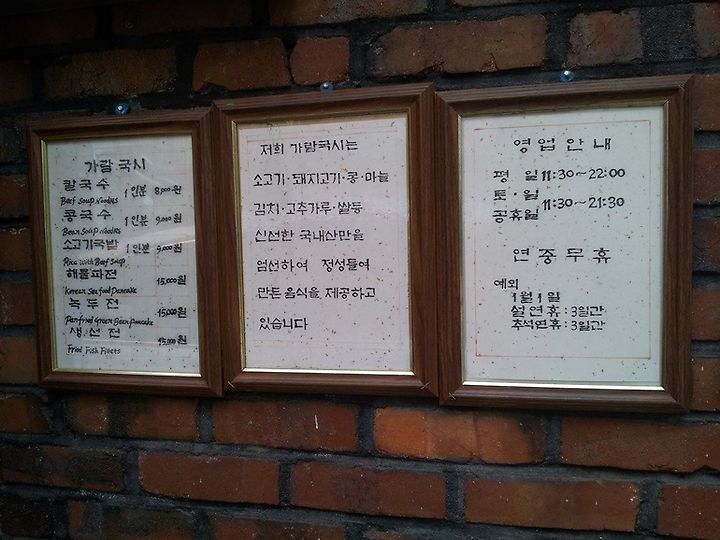 가람국시
칼국수 1인분 8,000원
Beef Soup Noodles
콩국수 1인분 9,000원
Bean Soup Noodles
소고기국밥 1인분 9,000원
Rice with Beef Soup
해물파전 15,000원
Korean Seafood Pancake
녹두전 15,000원
Panfried Green Bean Pancake
생선전 15,000원
Fried Fish Fillets
저희 가람국시는
소고기·돼지고기·콩·마늘
김치·고추가루·쌀등
신선한 국내산만을
엄선하여 정성들여
만든음식을 제공하고
있습니다
영업안내
평일 11:30~22:00
토·일
공휴일 11:30~21:30
연중무휴
예외
1월1일
설연휴:3일간
추석연휴:3일간